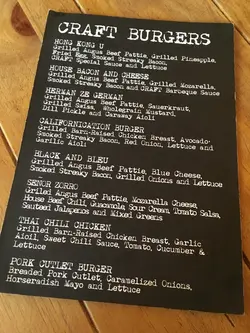 CRAFT BURGERS
HONG KONG U
Grilled Angus Beef Pattie, Grilled Pineapple,
Fried Egg, Smoked Streaky Bacon,
CRAFT Special Sauce and Lettuce
HOUSE BACON AND CHEESE
Grilled Angus Beef Pattie, Grilled Mozarella,
Smoked Streaky Bacon and CRAFT Barbeque Sauce
HERMAN ZE GERMAN
Grilled Angus Beef Pattie, Sauerkraut,
Grilled Salsa, Wholegrain Mustard,
Dill Pickle and Caraway Aioli
CALIFORNICATION BURGER
Grilled Barn-Raised Chicken Breast, Avocado,
Smoked Streaky Bacon, Red Onion, Lettuce and
Garlic Aioli
BLACK AND BLEU
Grilled Angus Beef Pattie, Blue Cheese,
Smoked Streaky Bacon, Grilled Onions and Lettuce
SENOR ZORRO
Grilled Angus Beef Pattie, Mozarella Cheese,
House Beef Chili, Guacamole, Sour Cream, Tomato Salsa,
Sauteed Jalapenos and Mixed Greens
THAI CHILI CHICKEN
Grilled Barn-Raised Chicken Breast, Garlic
Aioli, Sweet Chili Sauce, Tomato, Cucumber &
Lettuce
PORK CUTLET BURGER
Breaded Pork Cutlet, Caramelized Onions,
Horseradish Mayo and Lettuce